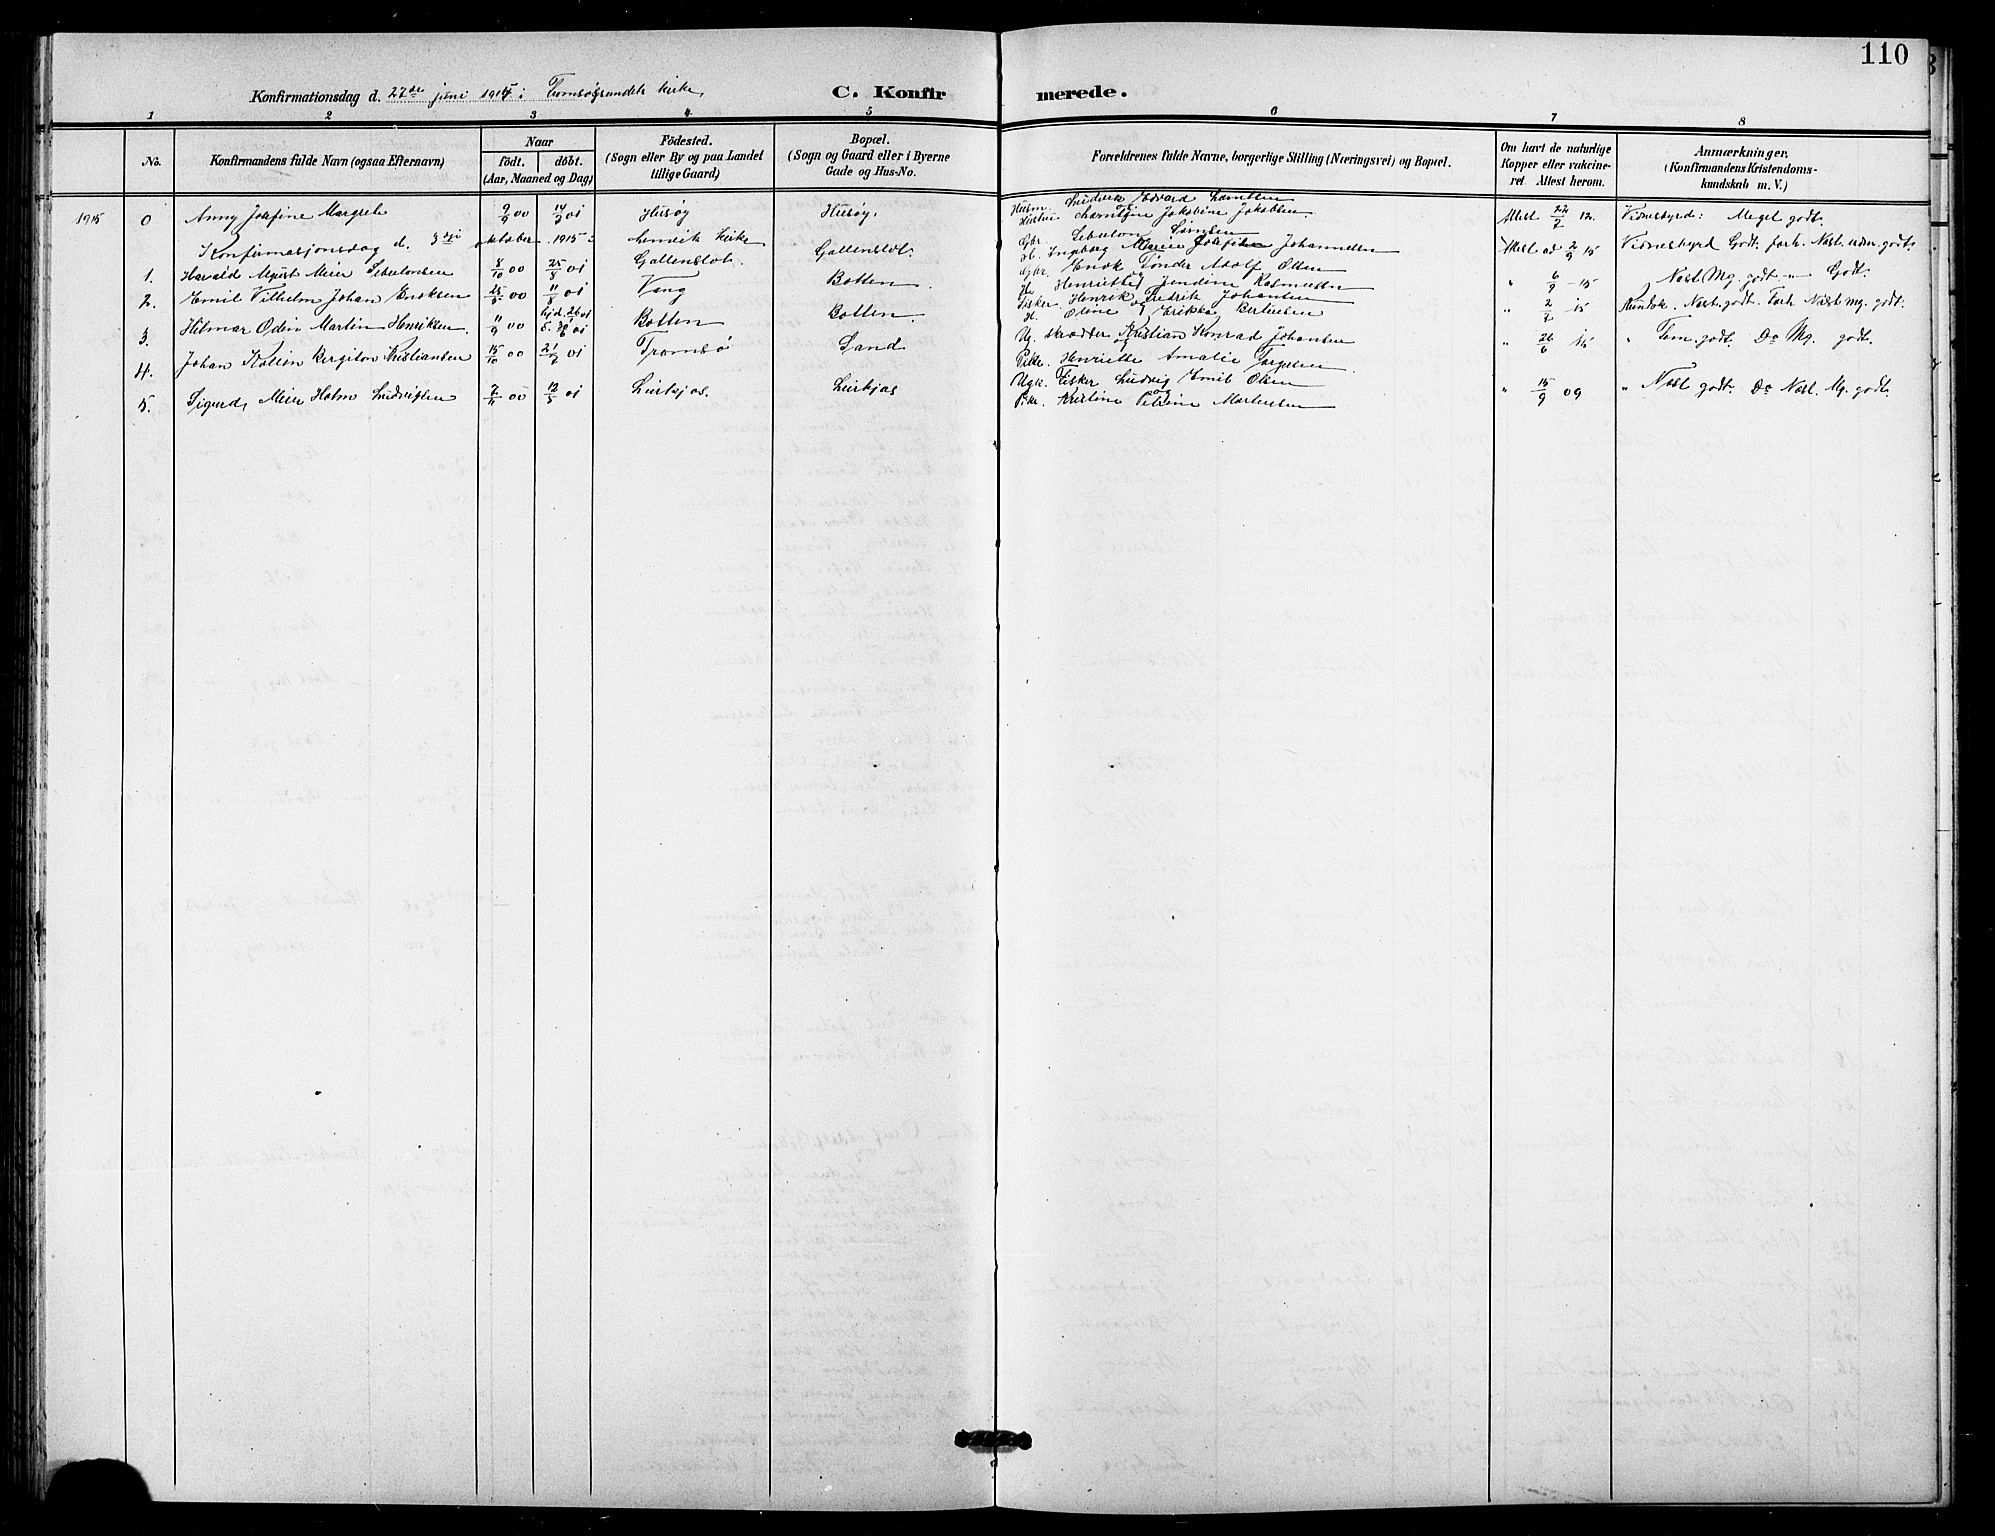 110
Konfirmationsdag d. 27de juni 1915 i Tromsøsundets kirke,
C. Konfirmerede.
1 2 3 4 5 6 7 8
No.
Konfirmandens fulde Navn (ogsaa Efternavn)
Naar
født. døbt.
(Aar, Maaned og Dag)
Födested.
(Sogn eller By og paa Landet
tillige Gaard)
Bopæl.
(Sogn og Gaard eller i Byerne
Gade og Hus-No.
Forældrenes fulde Navne, borgerlige Stilling (Næringsvei) og Bopæl.
Om havt de naturlige
Kopper eller vakcine-
ret. Attest herom.
Anmærkninger,
(Konfirmandens Kristendoms-
kundskab m. V.)
1915 0 Anny Josefine Margrete 9/9 00 14/ 01 Husøy Husøy. Husm. Ludvik Edvard
Hustru Jakobine Jakobsen Attest 22/2 12. Vidnesbyrd: Meget godt.
Konfirmasjonsdag d. 3dje oktober 1915 i Lenvik kirke
1. Harald Meier Sebulonsen 8/10 00 25/8 01 Gallenslot. Gallenslot. Gbr. Sebulon
H. Ingeborg Marie Josefine Johannesen Attest ad 2/9 15 Vidnesbyrd Godt. forh. Næst. udm. godt.
2. Emil Vilhelm Johan Enoksen 25/5 00 11/8 01 Vang Botten. Gbr. Enok Tønder Adolf Olsen
H. Henriette Jendine Rasmussen " 6/9 - 15 Næst Mg. godt " Godt.
3. Hilmar Odin Martin Henriksen. 11/9 00 hjd. 26/1 01 Botten Botten. Fisker Henrik Fredrik Johansen
H. Oline Erikka Bertinsen " 2/7 15 Kundsk. Næst. godt. Forh. Næst mg. godt.
4. Johan Kolbin Bergiton Kristiansen 15/10 00 21/7 01 Tromsø Sand Ug. skrædder Kristian Konrad Johansen
Pike. Henriette Amalie Torgersen " 26/6 15 " Tem. godt. Do Mg. godt.
5. Sigurd Meier Holm Ludvigsen 7/11 00 12/5 01 Leirkjos. Leirkjos Ugk. Fisker Ludvig Emil Olsen
Pike. Kristine Petrine Mortensen " 15/9 09 " Næst godt. Do Næst. Mg. godt.